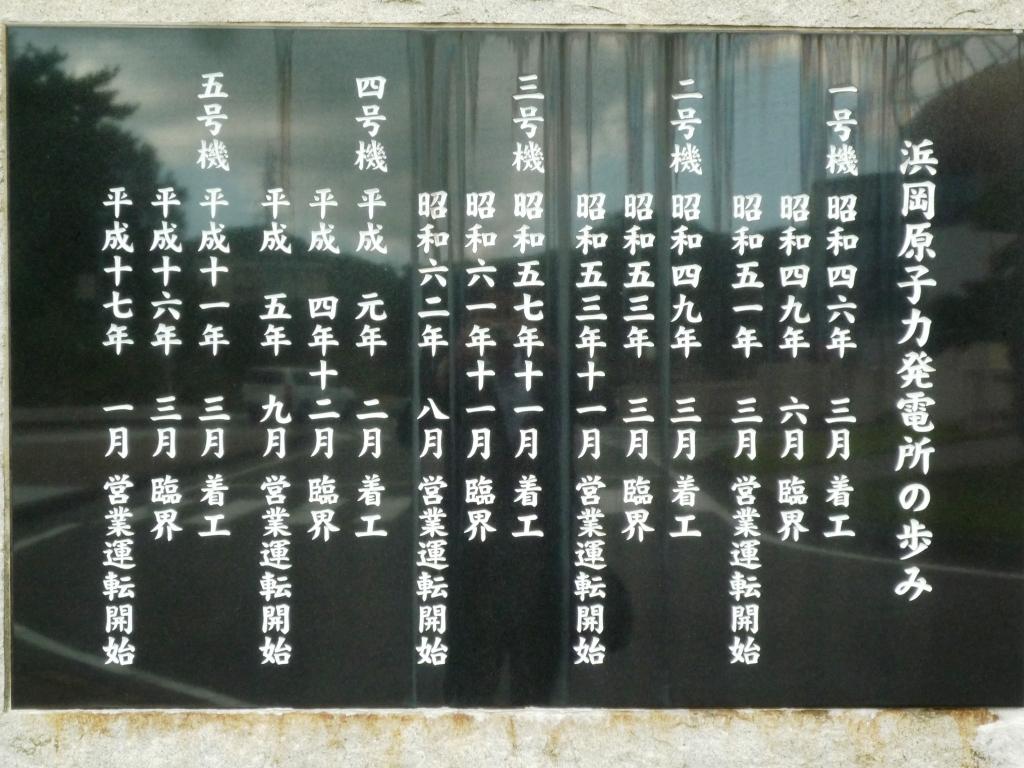 浜岡原子力発電所の歩み
一号機 昭和四六年 三月 着工
昭和四九年 六月 臨界
昭和五一年 三月 営業運転開始
二号機 昭和四九年 三月 着工
昭和五三年 三月 臨界
昭和五三年十一月 営業運転開始
三号機 昭和五七年十一月 着工
昭和六一年十一月 臨界
昭和六二年 八月 営業運転開始
四号機 平成 元年 二月 着工
平成 四年十二月 臨界
平成 五年 九月 営業運転開始
五号機 平成十一年 三月 着工
平成十六年 三月 臨界
平成十七年 一月 営業運転開始